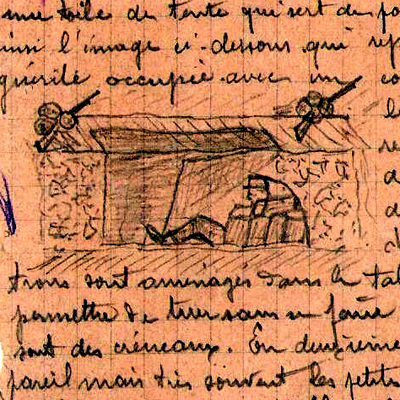 une toile de tente qui sert de po
ainsi l'image ci-dessous qui rep
guérite occupée avec un co
le
re
a
d
d
trous sont aménagés dans le tal
permettre de tirer sans se faire
sont des créneaux. En deuxième
pareil mais très souvent les petits